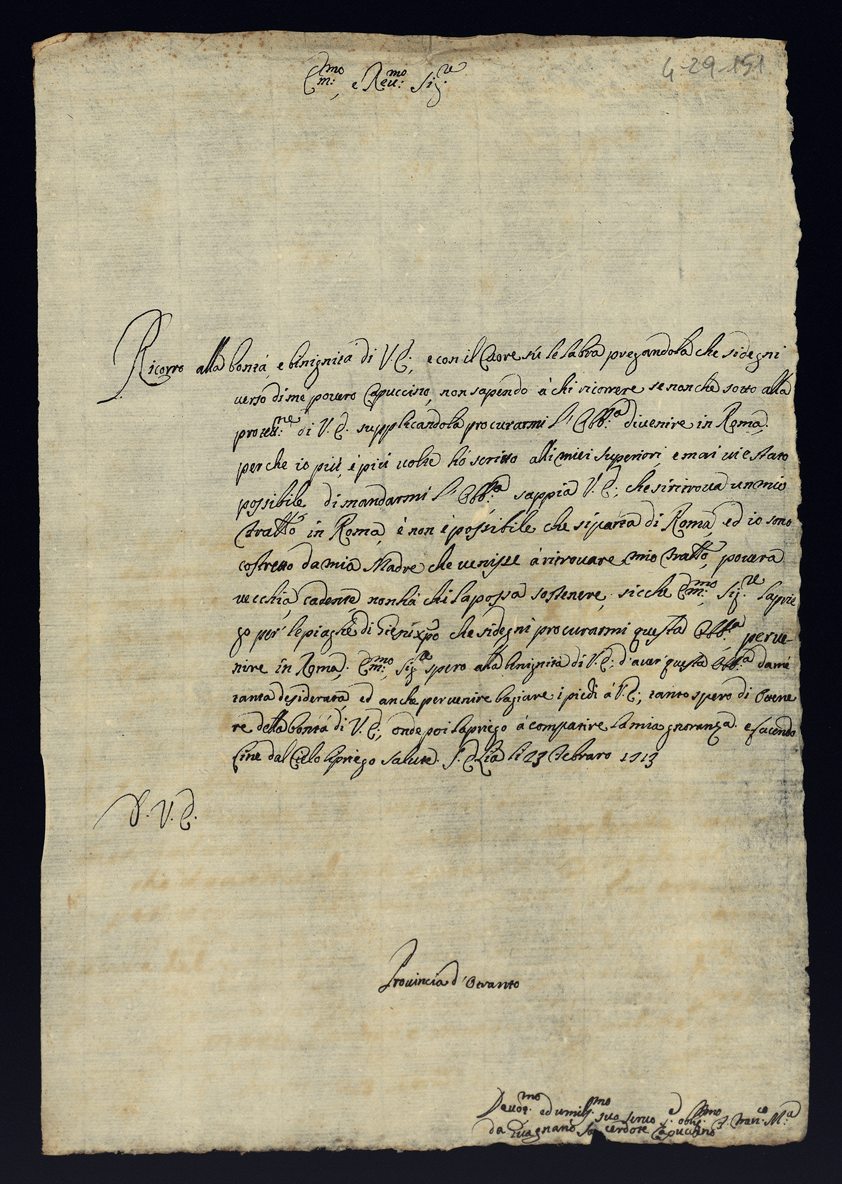 4-29-151
Em.mo e Rev.mo Sig.re
Ricorro alla bontà, e binignità di V. E., e con il Cuore sù le labra pregandola che si degni
verso di me povero Capuccino, non sapendo à chi ricorrere se non che sotto alla
protett.ne di V. E. supplicandola procurarmi l'Obb.a di venire in Roma,
perche io più, è più volte hò scritto alli miei superiori, e mai vi è stato
possibile di mandarmi l'Obb.a sappia V. E., che si ritrova un mio
tratto in Roma, è non è possibile che si parta di Roma, ed io sono
costretto da mia Madre che venisse à ritrovare mio tratto, povera
vecchia, cadente non hà chi la possa sostenere, sicche Em.mo Sig.re la prie
go per le piaghe di Giesù xpo che si degni procurarmi questa Obb.a per ve-
nire in Roma. Em.mo Sig.re spero alla binignità di V. E. d'aver questa Obb.a da mè
tanta desiderata, ed anche per venire bagiare i piedi à V. E., tanto spero di Ottene
re della bontà di V. E., onde poi la priego à compatire la mia gnoranza. e facendo
fine dal Cielo la priego salute. li 23 Febraro 1713
D. V. E.
Provincia d'Otranto
Devot.mo ed umiliss.mo suo servo e oblig.mo F. Fran.co M.a
da Guagnano Sacerdote Capuccino